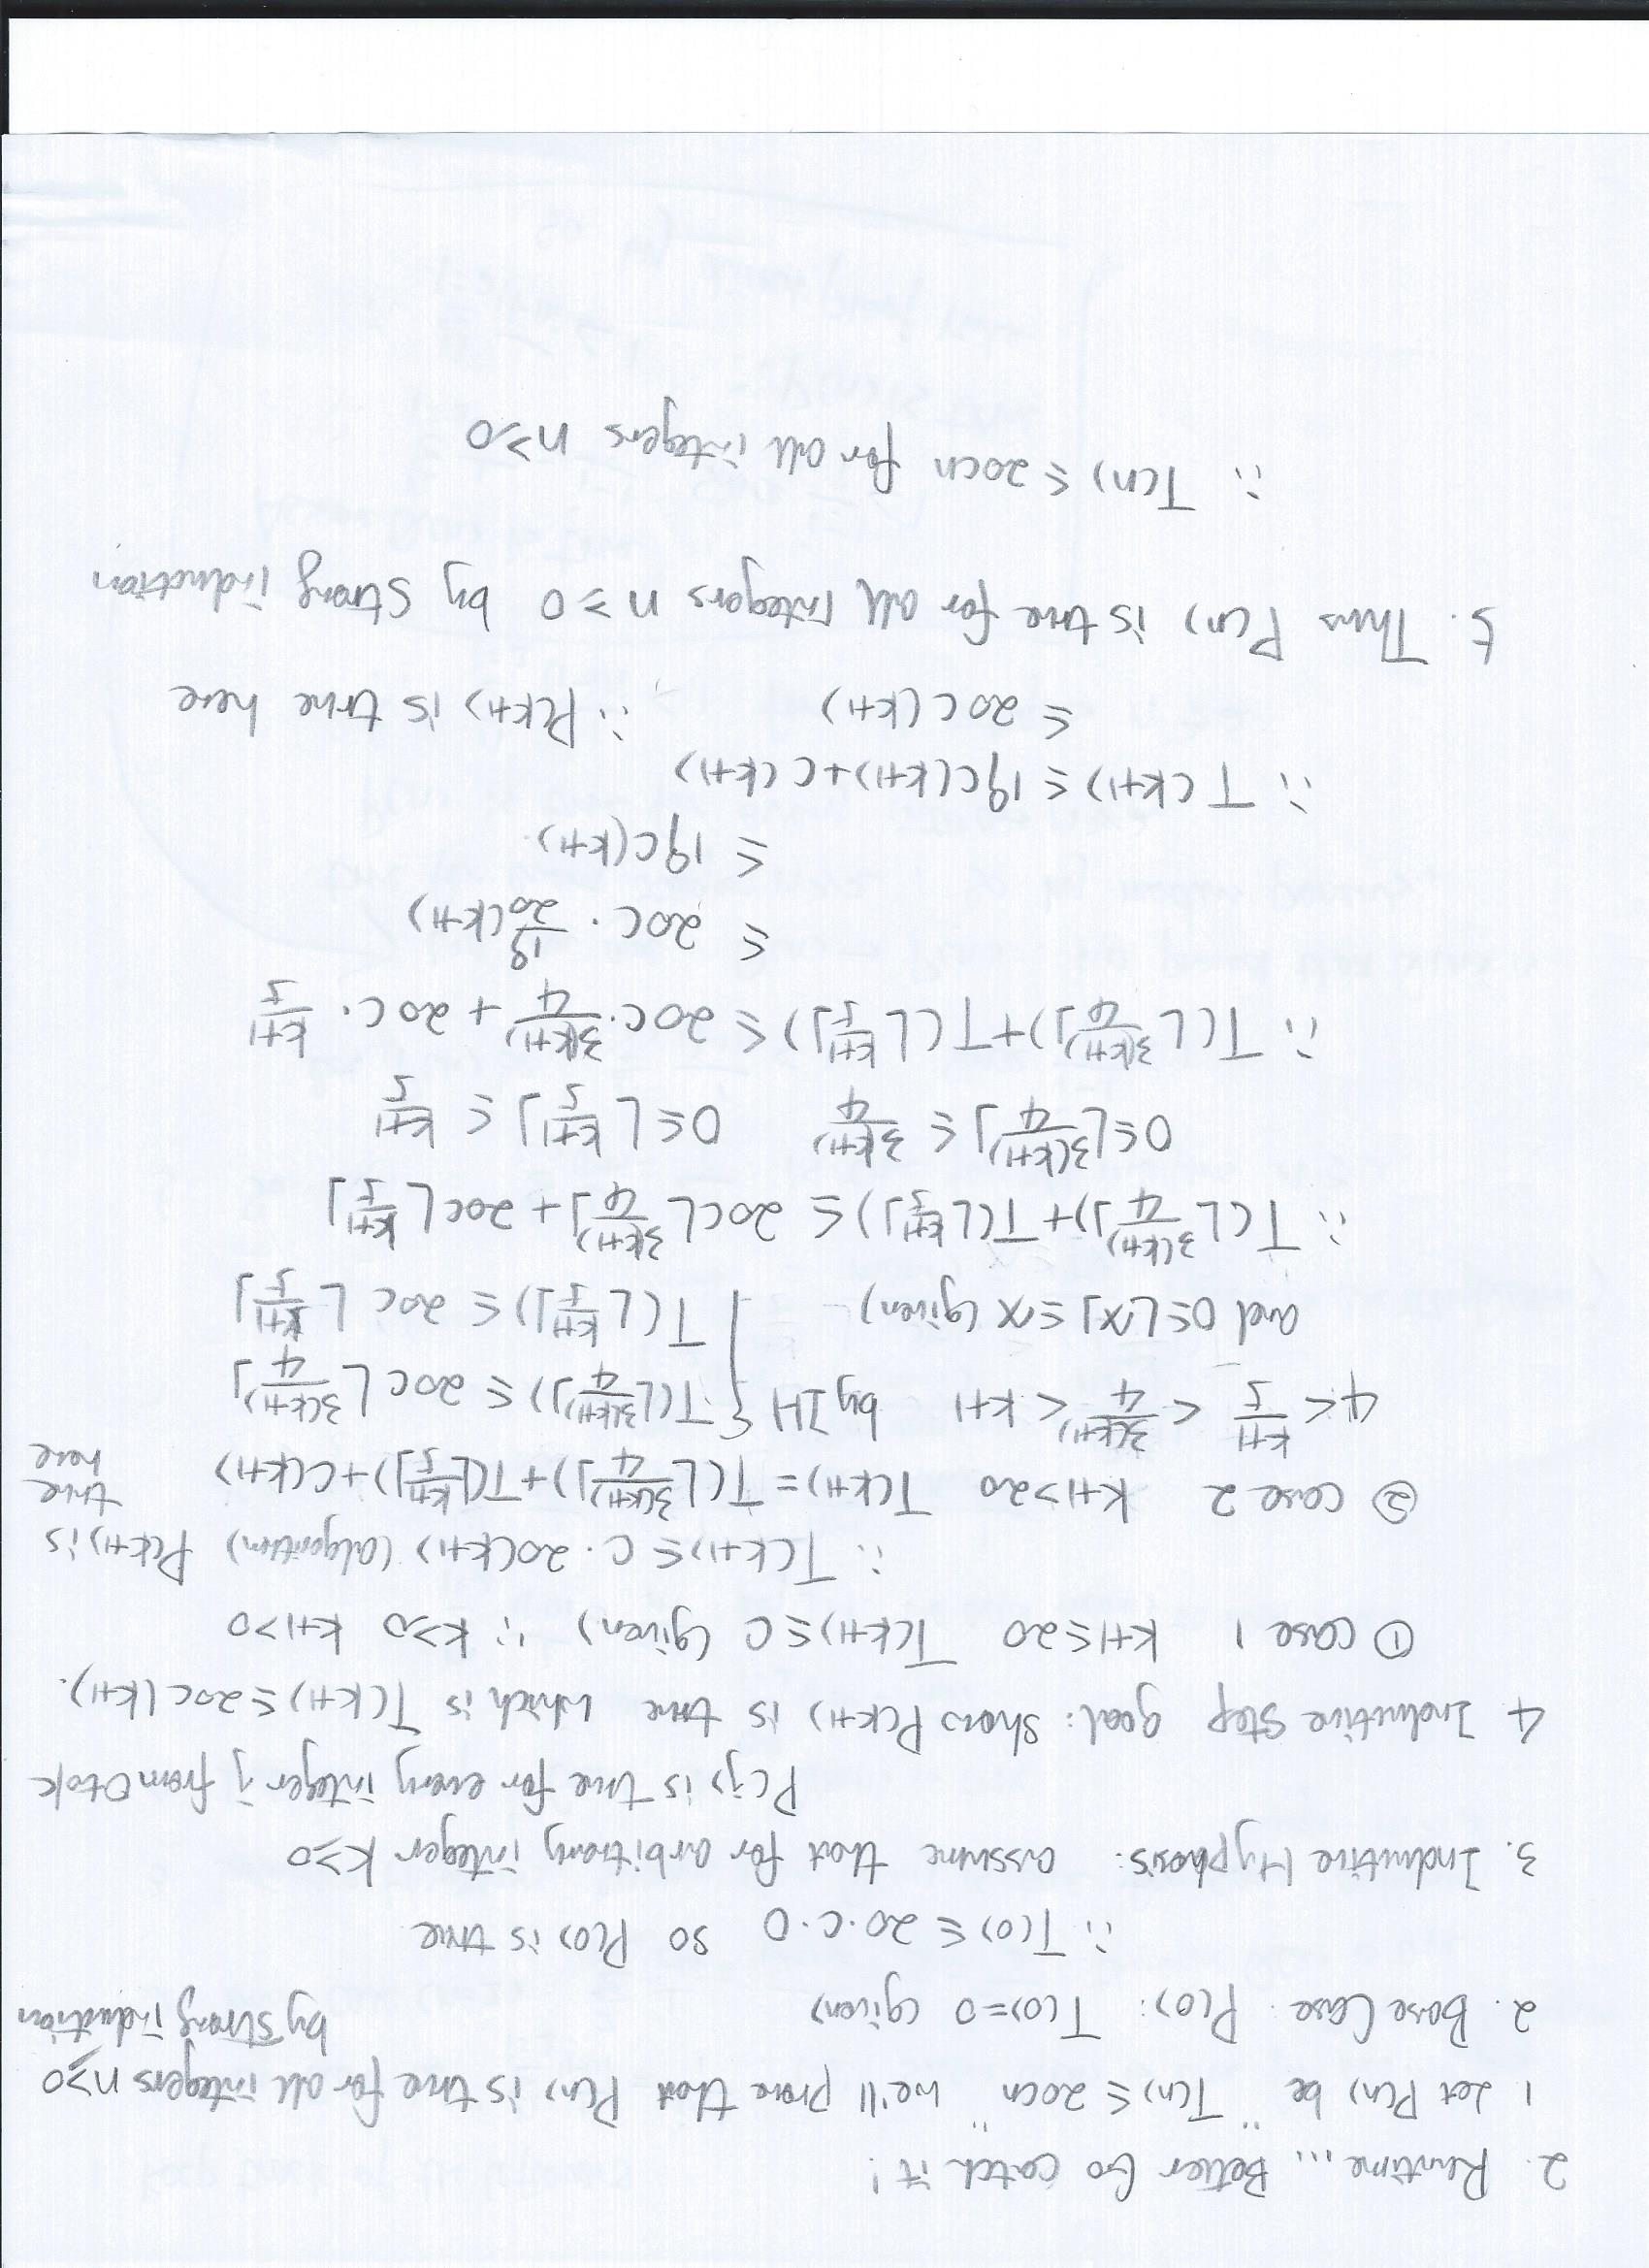 2. Runtime... Better Go catch it!
1 Let P(n) be "T(n) ≤ 20cn" we'll prove that P(n) is true for all integers n≥0
by strong induction
2. Base Case: P(0): T(0)=0 (given)
∴ T(0) ≤ 20·c·0 so P(0) is true.
3. Inductive Hyphosis: assume that for arbitrary integer k≥0
P(j) is true for every integer j from 0 to k
4 Inductive step goal: show P(k+1) is true which is T(k+1) ≤ 20c(k+1).
① case 1 k+1≤20 T(k+1) ≤ c (given) ∵ k≥0 k+1>0
∴ T(k+1) ≤ c · 20(k+1) (algorithm) P(k+1) is true here
② case 2 k+1>20 T(k+1) = T(⌊3(k+1)/4⌋) + T(⌊k+1/5⌋) + c(k+1)
4 < k+1/5 < 3(k+1)/4 < k+1 by IH { T(⌊3(k+1)/4⌋) ≤ 20c ⌊3(k+1)/4⌋
and 0≤⌊x⌋≤x (given) T(⌊k+1/5⌋) ≤ 20c ⌊k+1/5⌋
∴ T(⌊3(k+1)/4⌋) + T(⌊k+1/5⌋) ≤ 20c⌊3(k+1)/4⌋ + 20c⌊k+1/5⌋
0≤⌊3(k+1)/4⌋ ≤ 3(k+1)/4 0≤⌊k+1/5⌋ ≤ k+1/5
∴ T(⌊3(k+1)/4⌋) + T(⌊k+1/5⌋) ≤ 20c·3(k+1)/4 + 20c·k+1/5
≤ 20c · 19/20(k+1)
≤ 19c(k+1).
∴ T(k+1) ≤ 19c(k+1)+c(k+1)
≤ 20c(k+1) ∴ P(k+1) is true here
5. Thus P(n) is true for all integers n≥0 by strong induction
∴ T(n) ≤ 20cn for all integers n≥0